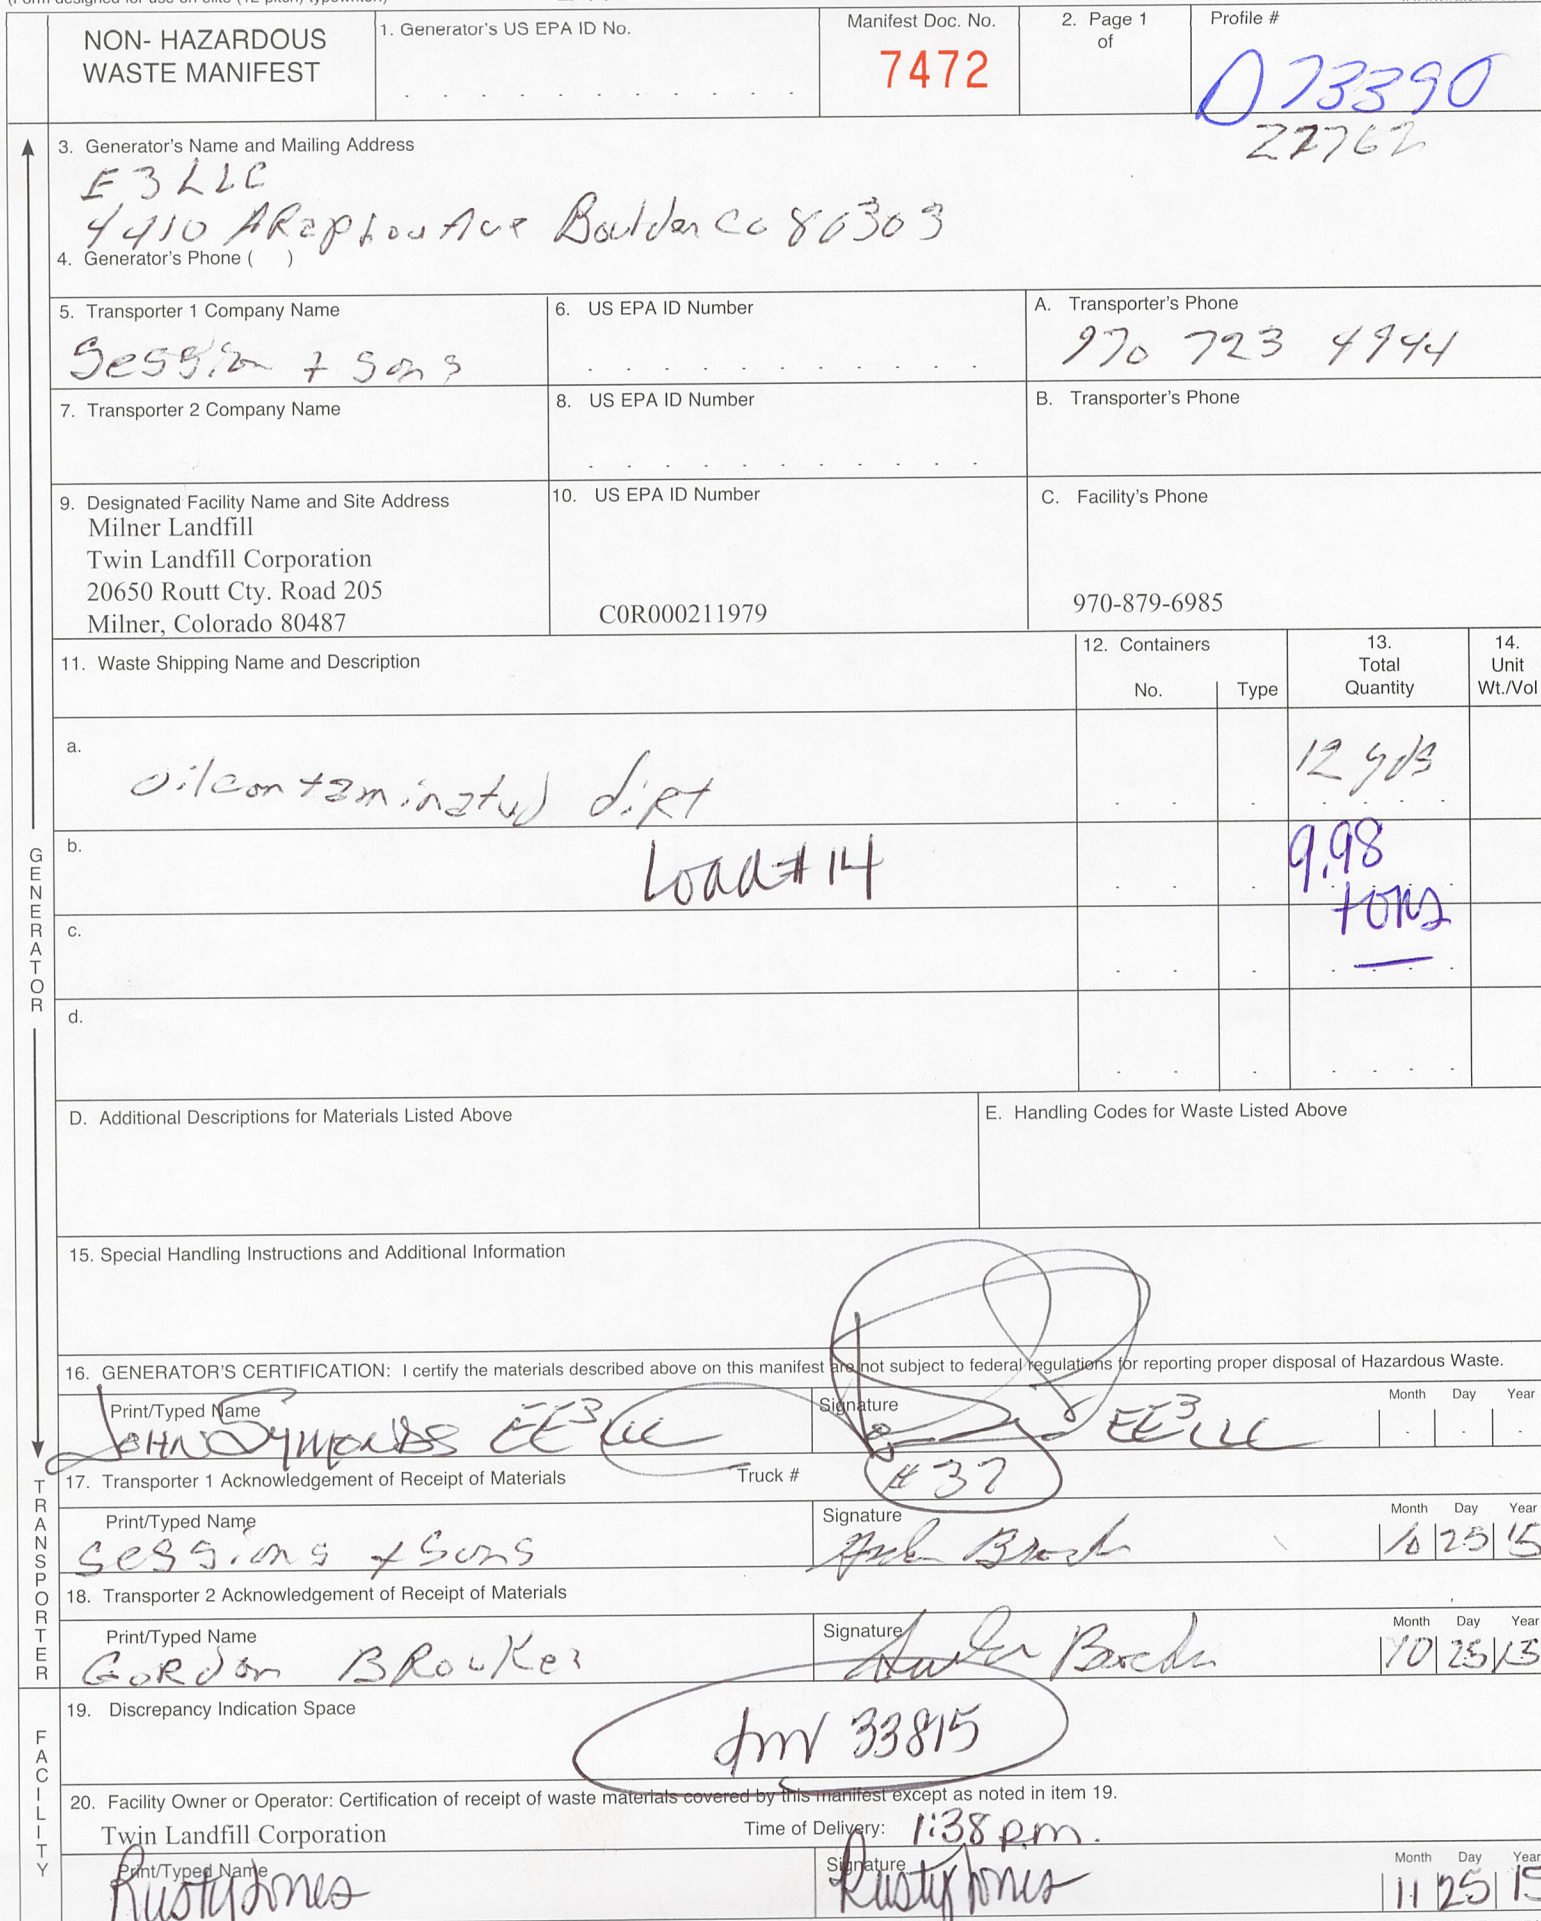 NON- HAZARDOUS
WASTE MANIFEST
1. Generator's US EPA ID No.
Manifest Doc. No.
7472
2. Page 1
of
Profile #
D73390
22762
3. Generator's Name and Mailing Address
E3 LLC
4410 ARaphou Ave Boulder Co 80303
4. Generator's Phone ( )
5. Transporter 1 Company Name
Session + Sons
6. US EPA ID Number
A. Transporter's Phone
970 723 4944
7. Transporter 2 Company Name
8. US EPA ID Number
B. Transporter's Phone
9. Designated Facility Name and Site Address
Milner Landfill
Twin Landfill Corporation
20650 Routt Cty. Road 205
Milner, Colorado 80487
10. US EPA ID Number
C0R000211979
C. Facility's Phone
970-879-6985
11. Waste Shipping Name and Description
12. Containers
No.
Type
13.
Total
Quantity
14.
Unit
Wt./Vol
a.
oil contaminatud dirt
12 yds
b.
Load # 14
9.98
tons
c.
d.
D. Additional Descriptions for Materials Listed Above
E. Handling Codes for Waste Listed Above
15. Special Handling Instructions and Additional Information
16. GENERATOR'S CERTIFICATION: I certify the materials described above on this manifest are not subject to federal regulations for reporting proper disposal of Hazardous Waste.
Print/Typed Name
JOHN SYMONDS EE3 LLC
Signature
EE3 LLC
Month Day Year
17. Transporter 1 Acknowledgement of Receipt of Materials
Truck #
# 37
Print/Typed Name
Sessions + Sons
Signature
Month Day Year
10 25 15
18. Transporter 2 Acknowledgement of Receipt of Materials
Print/Typed Name
GoRdon BRouKer
Signature
Month Day Year
10 25 15
19. Discrepancy Indication Space
33815
20. Facility Owner or Operator: Certification of receipt of waste materials covered by this manifest except as noted in item 19.
Twin Landfill Corporation
Time of Delivery: 1:38 p.m.
Print/Typed Name
Rusty Jones
Signature
Rusty Jones
Month Day Year
11 25 15
GENERATOR
TRANSPORTER
FACILITY